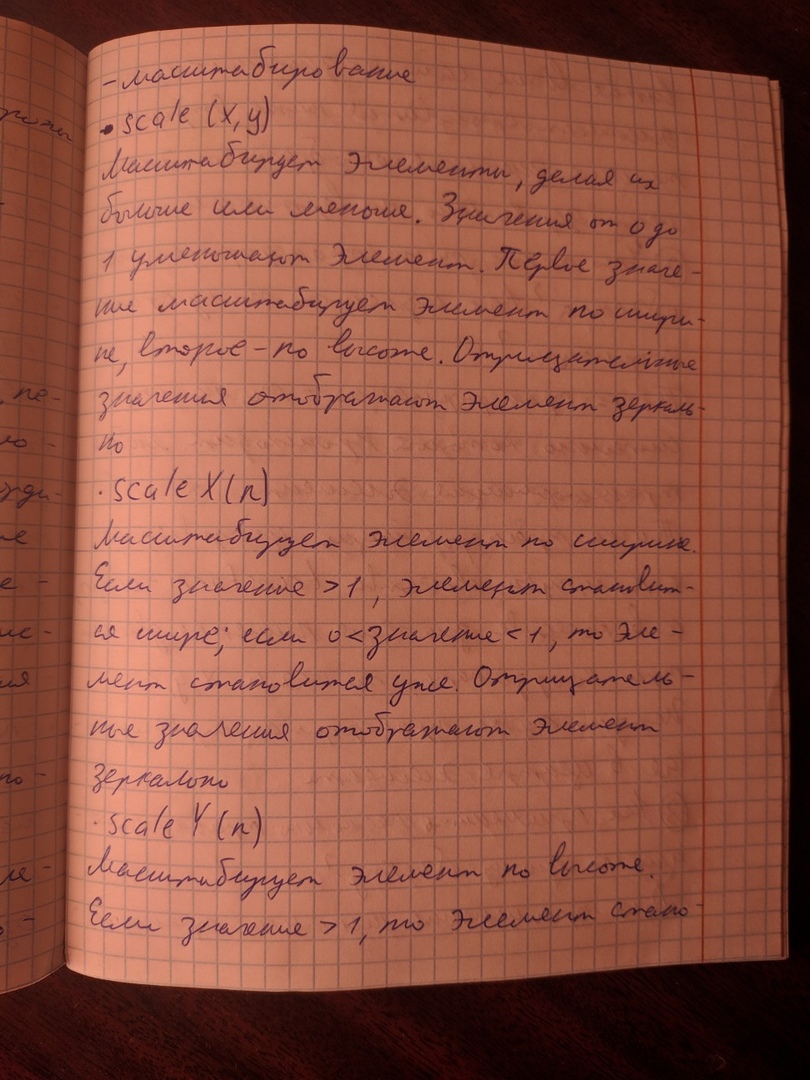 - масштабирование
• scale (x,y)
Масштабирует элементы, делая их
больше или меньше. Значения от 0 до
1 уменьшают элемент. Первое значе-
ние масштабирует элемент по шири-
не, второе - по высоте. Отрицательные
значения отображают элемент зеркаль-
но
· scale X(n)
Масштабирует элемент по ширине.
Если значение > 1, элемент становит-
ся шире; если 0 < значение < 1, то эле-
мент становится уже. Отрицатель-
ные значения отображают элемент
зеркально
· scale Y (n)
Масштабирует элемент по высоте.
Если значение > 1, то элемент стано-